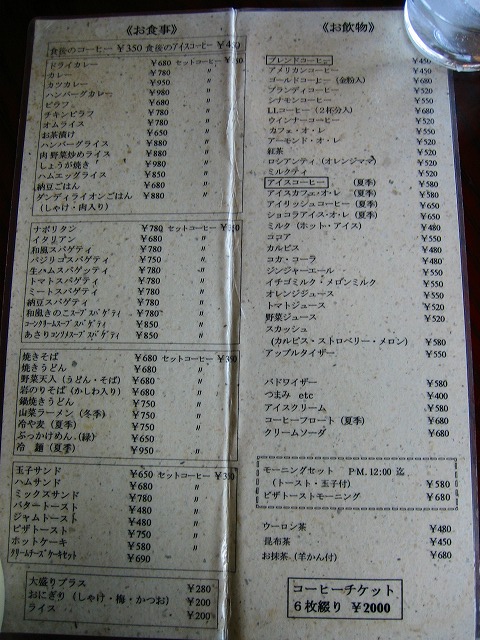 《お食事》
食後のコーヒー ￥350 食後のアイスコーヒー ￥450
ドライカレー ￥680 セットコーヒー ￥350
カレー ￥780 〃
カツカレー ￥950 〃
ハンバーグカレー ￥980 〃
ピラフ ￥680 〃
チキンピラフ ￥780 〃
オムライス ￥780 〃
お茶漬け ￥650 〃
ハンバーグライス ￥880 〃
肉野菜炒めライス ￥880 〃
しょうが焼き ￥980 〃
ハムエッグライス ￥850 〃
納豆ごはん ￥680 〃
ダンディライオンごはん ￥880 〃
(しゃけ・肉入り)
ナポリタン ￥780 セットコーヒー ￥350
イタリアン ￥680 〃
和風スパゲティ ￥780 〃
バジリコスパゲティ ￥750 〃
生ハムスパゲッティ ￥780 〃
トマトスパゲティ ￥780 〃
ミートスパゲティ ￥780 〃
納豆スパゲティ ￥780 〃
和風きのこスープスパゲティ ￥780 〃
コーンクリームスープスパゲティ ￥850 〃
あさりコンソメスープスパゲティ ￥850 〃
焼きそば ￥680 セットコーヒー ￥350
焼きうどん ￥680 〃
野菜天入(うどん・そば) ￥680 〃
岩のりそば(かしわ入り) ￥680 〃
鍋焼きうどん ￥750 〃
山菜ラーメン(冬季) ￥750 〃
冷や麦(夏季) ￥750 〃
ぶっかけめん(緑) ￥650
冷 麺(夏季) ￥950 〃
玉子サンド ￥650 セットコーヒー ￥350
ハムサンド ￥680 〃
ミックスサンド ￥780 〃
バタートースト ￥480 〃
ジャムトースト ￥480 〃
ピザトースト ￥750 〃
ホットケーキ ￥580 〃
クリームチーズケーキセット ￥690
大盛りプラス ￥280
おにぎり(しゃけ・梅・かつお) ￥200
ライス ￥200
《お飲物》
ブレンドコーヒー ￥450
アメリカンコーヒー ￥450
ゴールドコーヒー(金粉入) ￥680
ブランディコーヒー ￥520
シナモンコーヒー ￥550
LLコーヒー(2杯分入) ￥680
ウインナーコーヒー ￥520
カフェ・オ・レ ￥550
アーモンド・オ・レ ￥520
紅茶 ￥520
ロシアンティ(オレンジママ) ￥520
ミルクティ ￥520
アイスコーヒー (夏季) ￥580
アイスカフェ・オ・レ (夏季) ￥580
アイリッシュコーヒー(夏季) ￥650
ショコラアイス・オ・レ(夏季) ￥650
ミルク(ホット・アイス) ￥480
ココア ￥550
カルピス ￥480
コカ・コーラ ￥480
ジンジャーエール ￥550
イチゴミルク・メロンミルク ￥550
オレンジジュース ￥550
トマトジュース ￥520
野菜ジュース ￥520
スカッシュ
(カルピス・ストロベリー・メロン) ￥580
アップルタイザー ￥550
バドワイザー ￥580
つまみ etc ￥400
アイスクリーム ￥580
コーヒーフロート(夏季) ￥680
クリームソーダ ￥680
モーニングセット P.M.12:00 迄
(トースト・玉子付) ￥580
ピザトーストモーニング ￥680
ウーロン茶 ￥480
昆布茶 ￥450
お抹茶(羊かん付) ￥680
コーヒーチケット
6枚綴り ￥2000